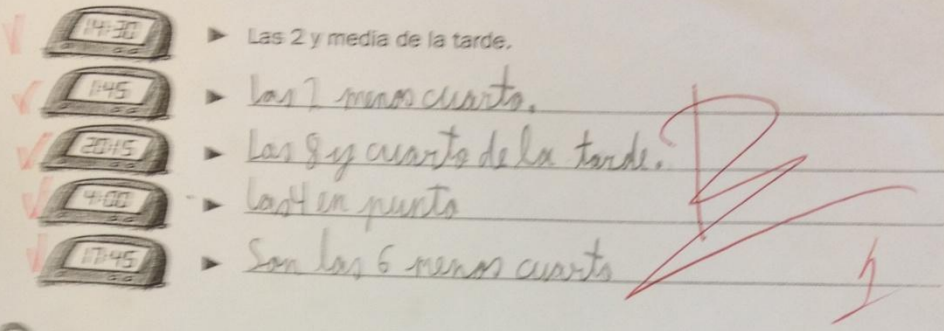 14:30 Las 2 y media de la tarde.
1:45 Las 2 menos cuarto.
20:15 Las 8 y cuarto de la tarde.
4:00 las 4 en punto
17:45 Son las 6 menos cuarto
B
1